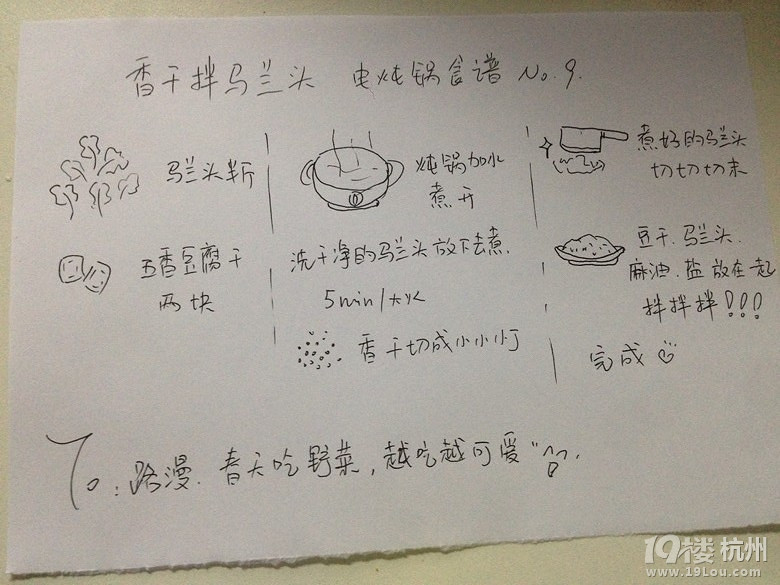 香干拌马兰头 电炖锅食谱 No.9.
马兰头半斤
五香豆腐干
两块
炖锅加水
煮开
洗干净的马兰头放下去煮.
5min/大火
香干切成小小小丁
煮好的马兰头
切切切末
豆干.马兰头.
麻油.盐放在一起
拌拌拌!!!
完成
To:路漫.春天吃野菜,越吃越可爱"
19楼杭州
www.19Lou.com